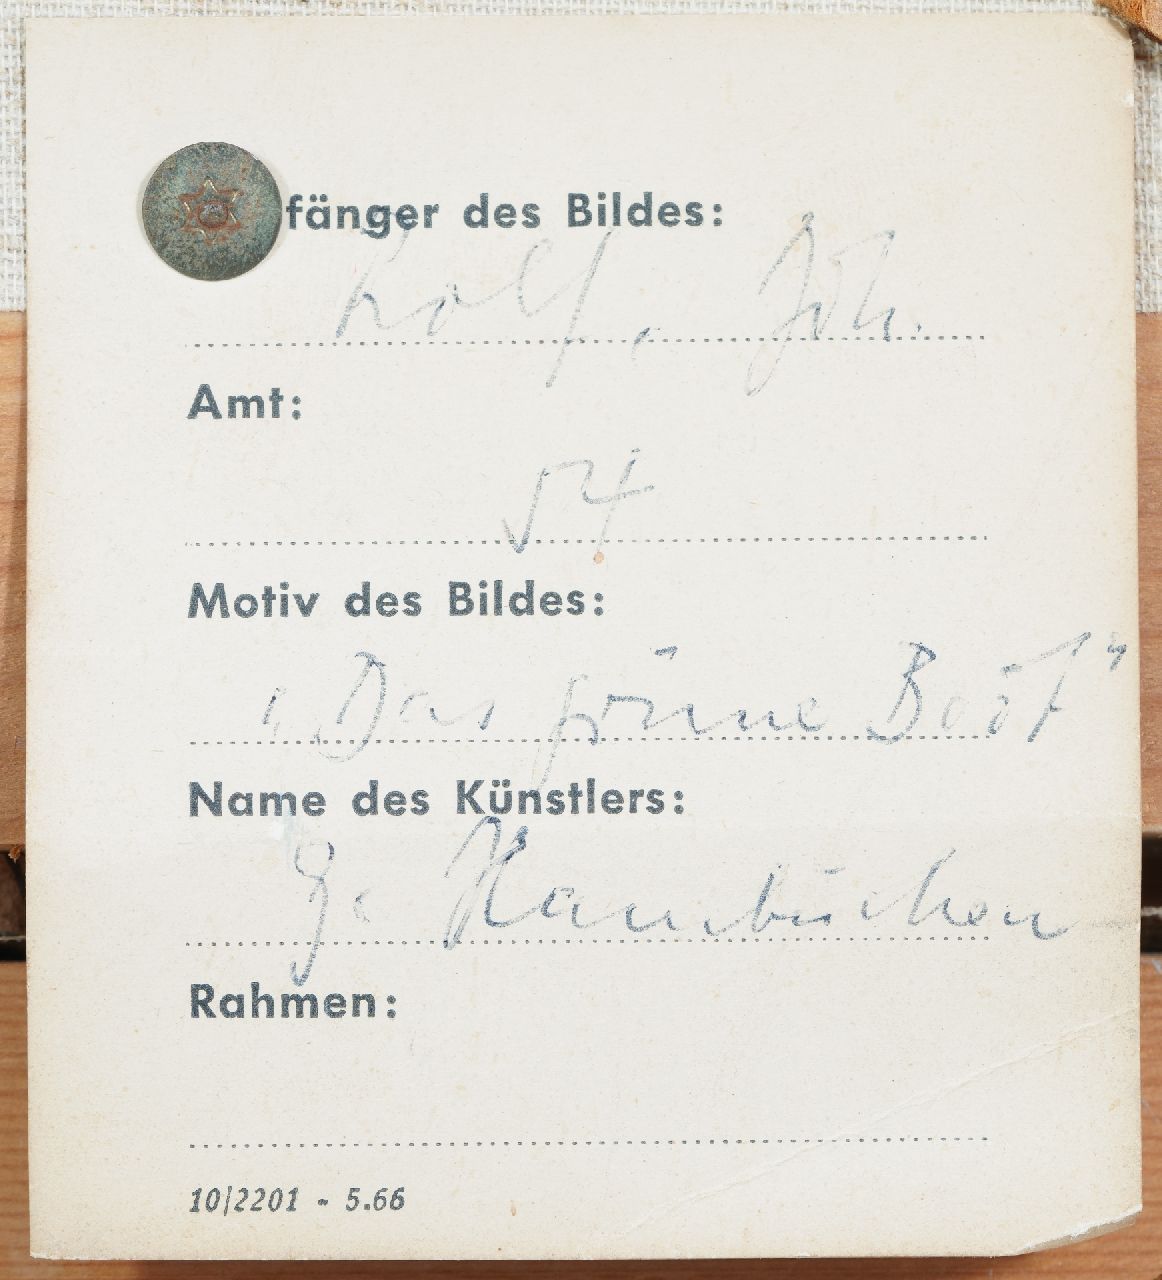 fänger des Bildes:
Joh.
Amt:
54
Motiv des Bildes:
„Das grüne Boot"
Name des Künstlers:
Hambüchen
Rahmen:
10/2201 - 5.66